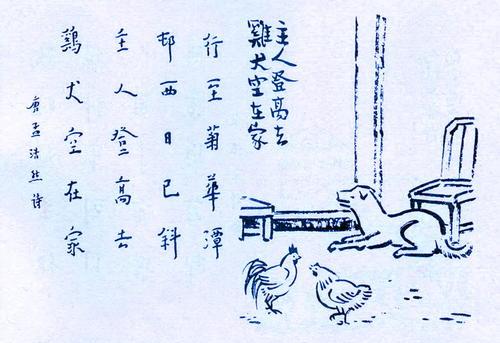 主人登高去
雞犬空在家
行至菊華潭
邨西日已斜
主人登高去
鷄犬空在家
唐孟浩然詩